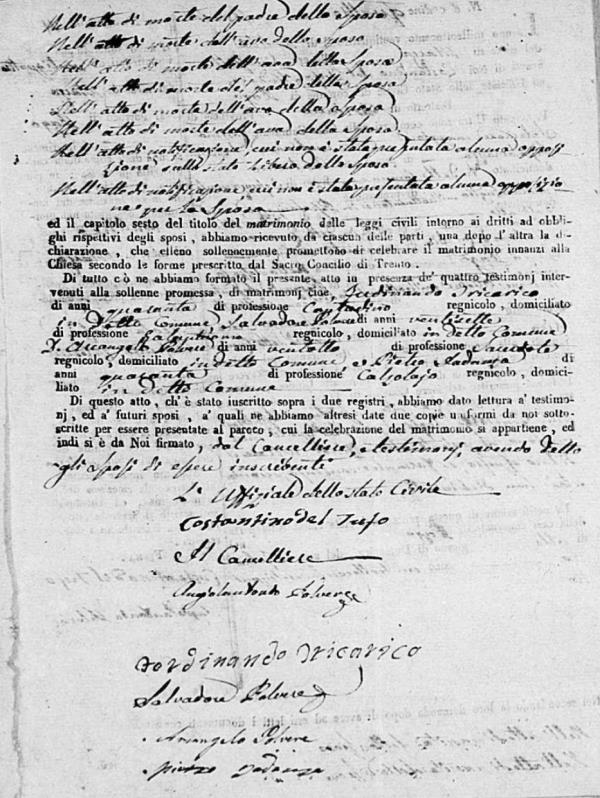 Nell'atto di morte del padre dello Sposo
Nell'atto di morte dell'avo dello Sposo
Nell'atto di morte dell'ava dello Sposo
Nell'atto di morte del padre della Sposa
Nell'atto di morte dell'avo della Sposa
Nell'atto di morte dell'ava della Sposa
Nell'atto di notificazione cui non è stata presentata alcuna opposi
zione sullo stato libero dello Sposo
Nell'atto di notificazione cui non è stata presentata alcuna opposizio
ne per la Sposa
ed il capitolo sesto del titolo del matrimonio delle leggi civili intorno ai dritti ad obbli-
ghi rispettivi degli sposi, abbiamo ricevuto da ciascun delle parti, una dopo l'altra la di-
chiarazione, che elleno sollennemente promettono di celebrare il matrimonio innanzi alla
Chiesa secondo le forme prescritto dal Sacro Concilio di Trento.
Di tutto ciò ne abbiamo formato il presente atto in presenza de' quattro testimonj inter-
venuti alla sollenne promessa, di matrimonj cioè, Ferdinando Tricarico
di anni quaranta di professione Contadino regnicolo, domiciliato
in detto Comune, Salvadore Polvere di anni ventisette
di professione regnicolo, domiciliato in detto Comune
D. Arcangelo Polvere di anni ventotto di professione
regnicolo, domiciliato in detto Comune e Pietro di
anni quaranta di professione Calzolajo regnicolo, domici-
liato in detto Comune
Di questo atto, ch'è stato iuscritto sopra i due registri, abbiamo dato lettura a' testimo-
nj, ed a' futuri sposi, a' quali ne abbiamo altresì date due copie uniformi da noi sotto-
scritte per essere presentate al pareco, cui la celebrazione del matrimonio si appartiene, ed
indi si è da Noi firmato, dal Cancelliere, e testimonj, avendo detto
gli sposi di essere inscribenti
L'Uffiziale dello stato Civile
Costantino del Tufo
Il Cancelliere
Angiolantonio Polvere
Ferdinando Tricarico
Salvadore Polvere
Arcangelo Polvere
Pietro